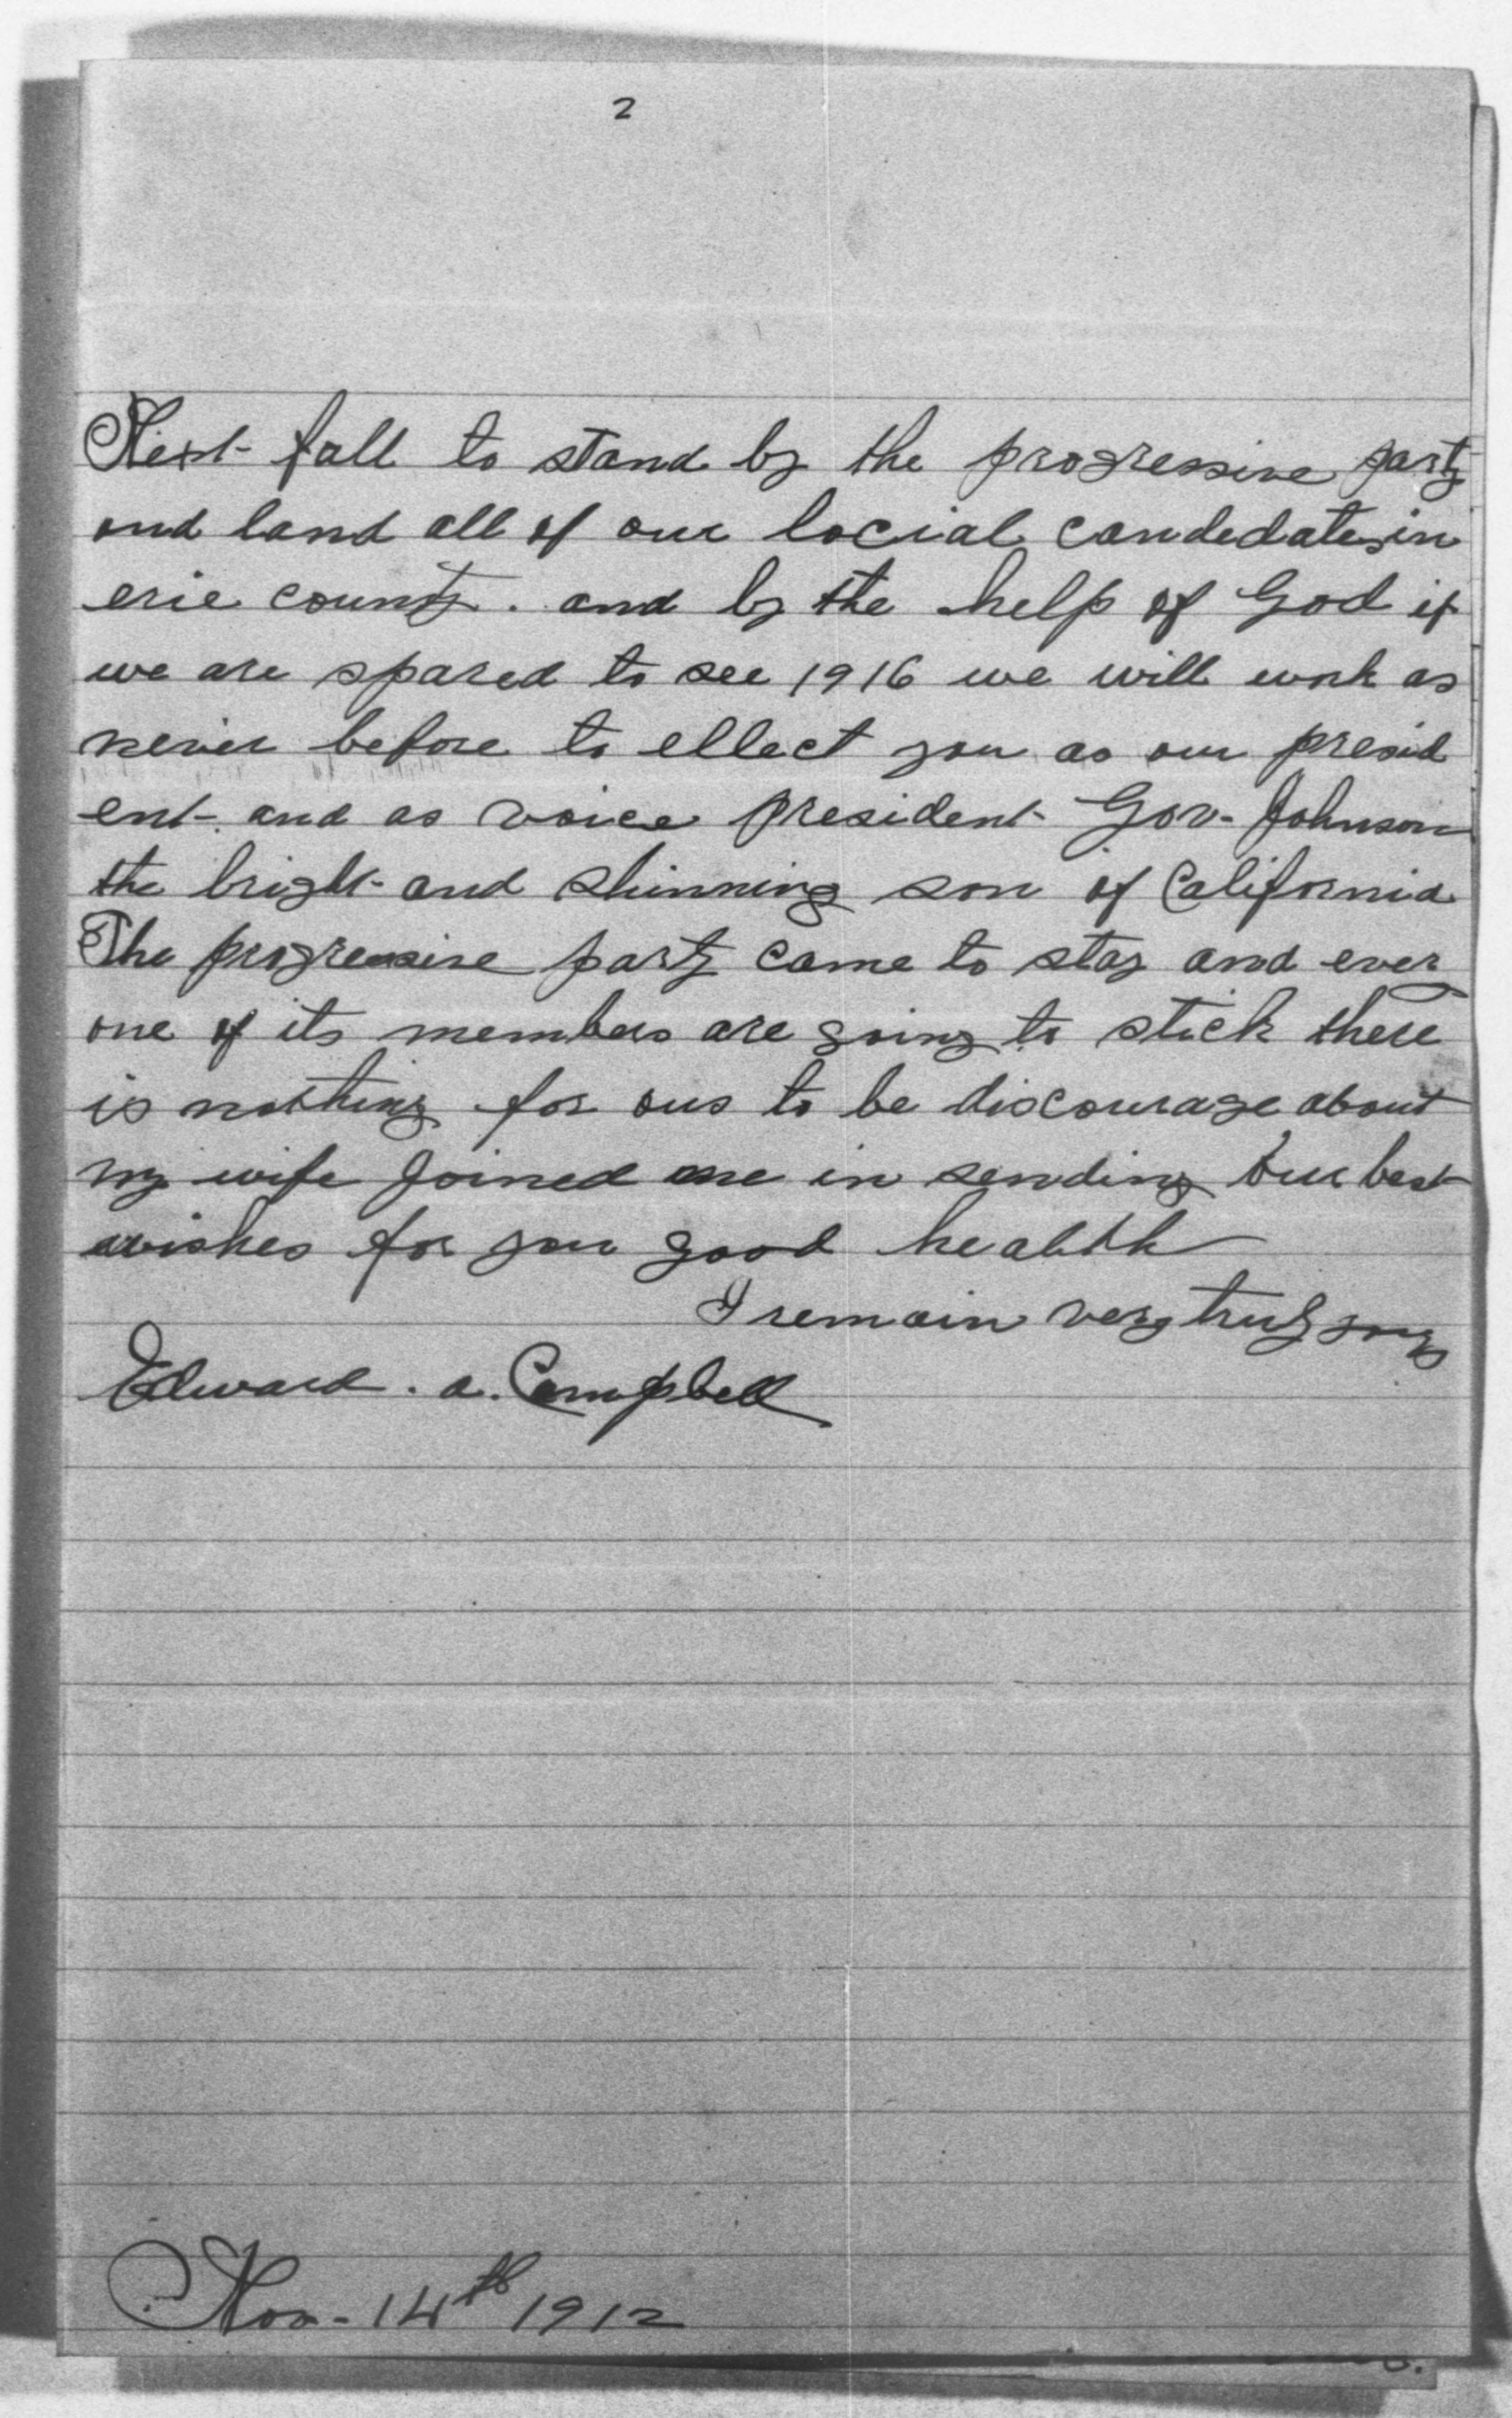 2
Next fall to stand by the progressive party
and land all of our locial candedates in
erie county. and by the help of God if
we are spared to see 1916 we will work as
never before to ellect you as our presid
ent. and as voice president Gov. Johnson
the bright and shinning son of California
The progressive party came to stay and every
one of its members are going to stick there
is nothing for ous to be discourage about
my wife joined me in sending our best
wishes for you good health
I remain very truly yours
Edward. a. Campbell
Nov- 14th 1912